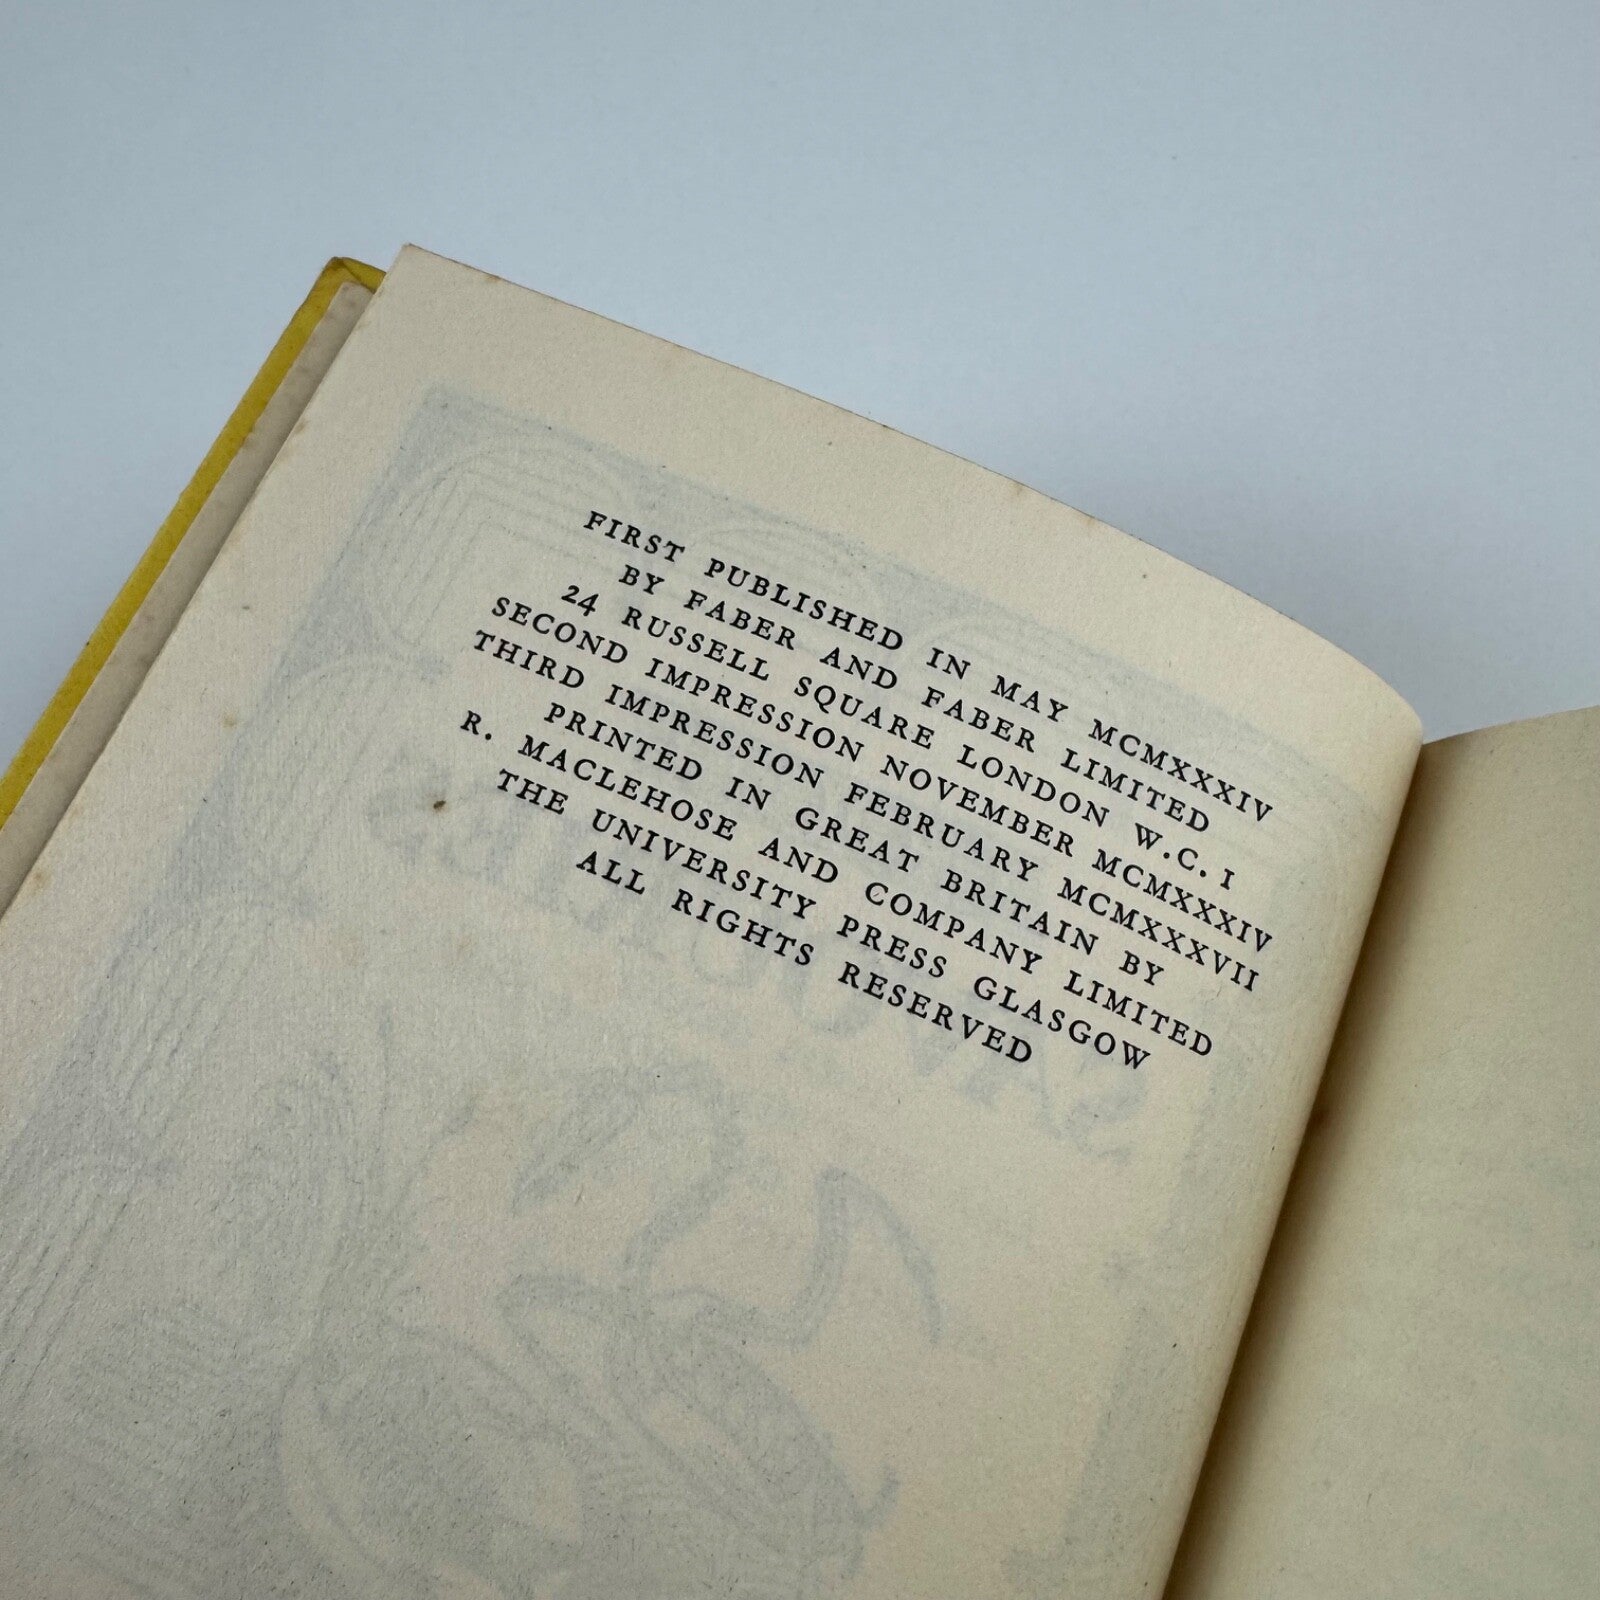 FIRST PUBLISHED IN MAY MCMXXXIV
BY FABER AND FABER LIMITED
24 RUSSELL SQUARE LONDON W.C. I
SECOND IMPRESSION NOVEMBER MCMXXXIV
THIRD IMPRESSION FEBRUARY MCMXXXVII
PRINTED IN GREAT BRITAIN BY
R. MACLEHOSE AND COMPANY LIMITED
THE UNIVERSITY PRESS GLASGOW
ALL RIGHTS RESERVED